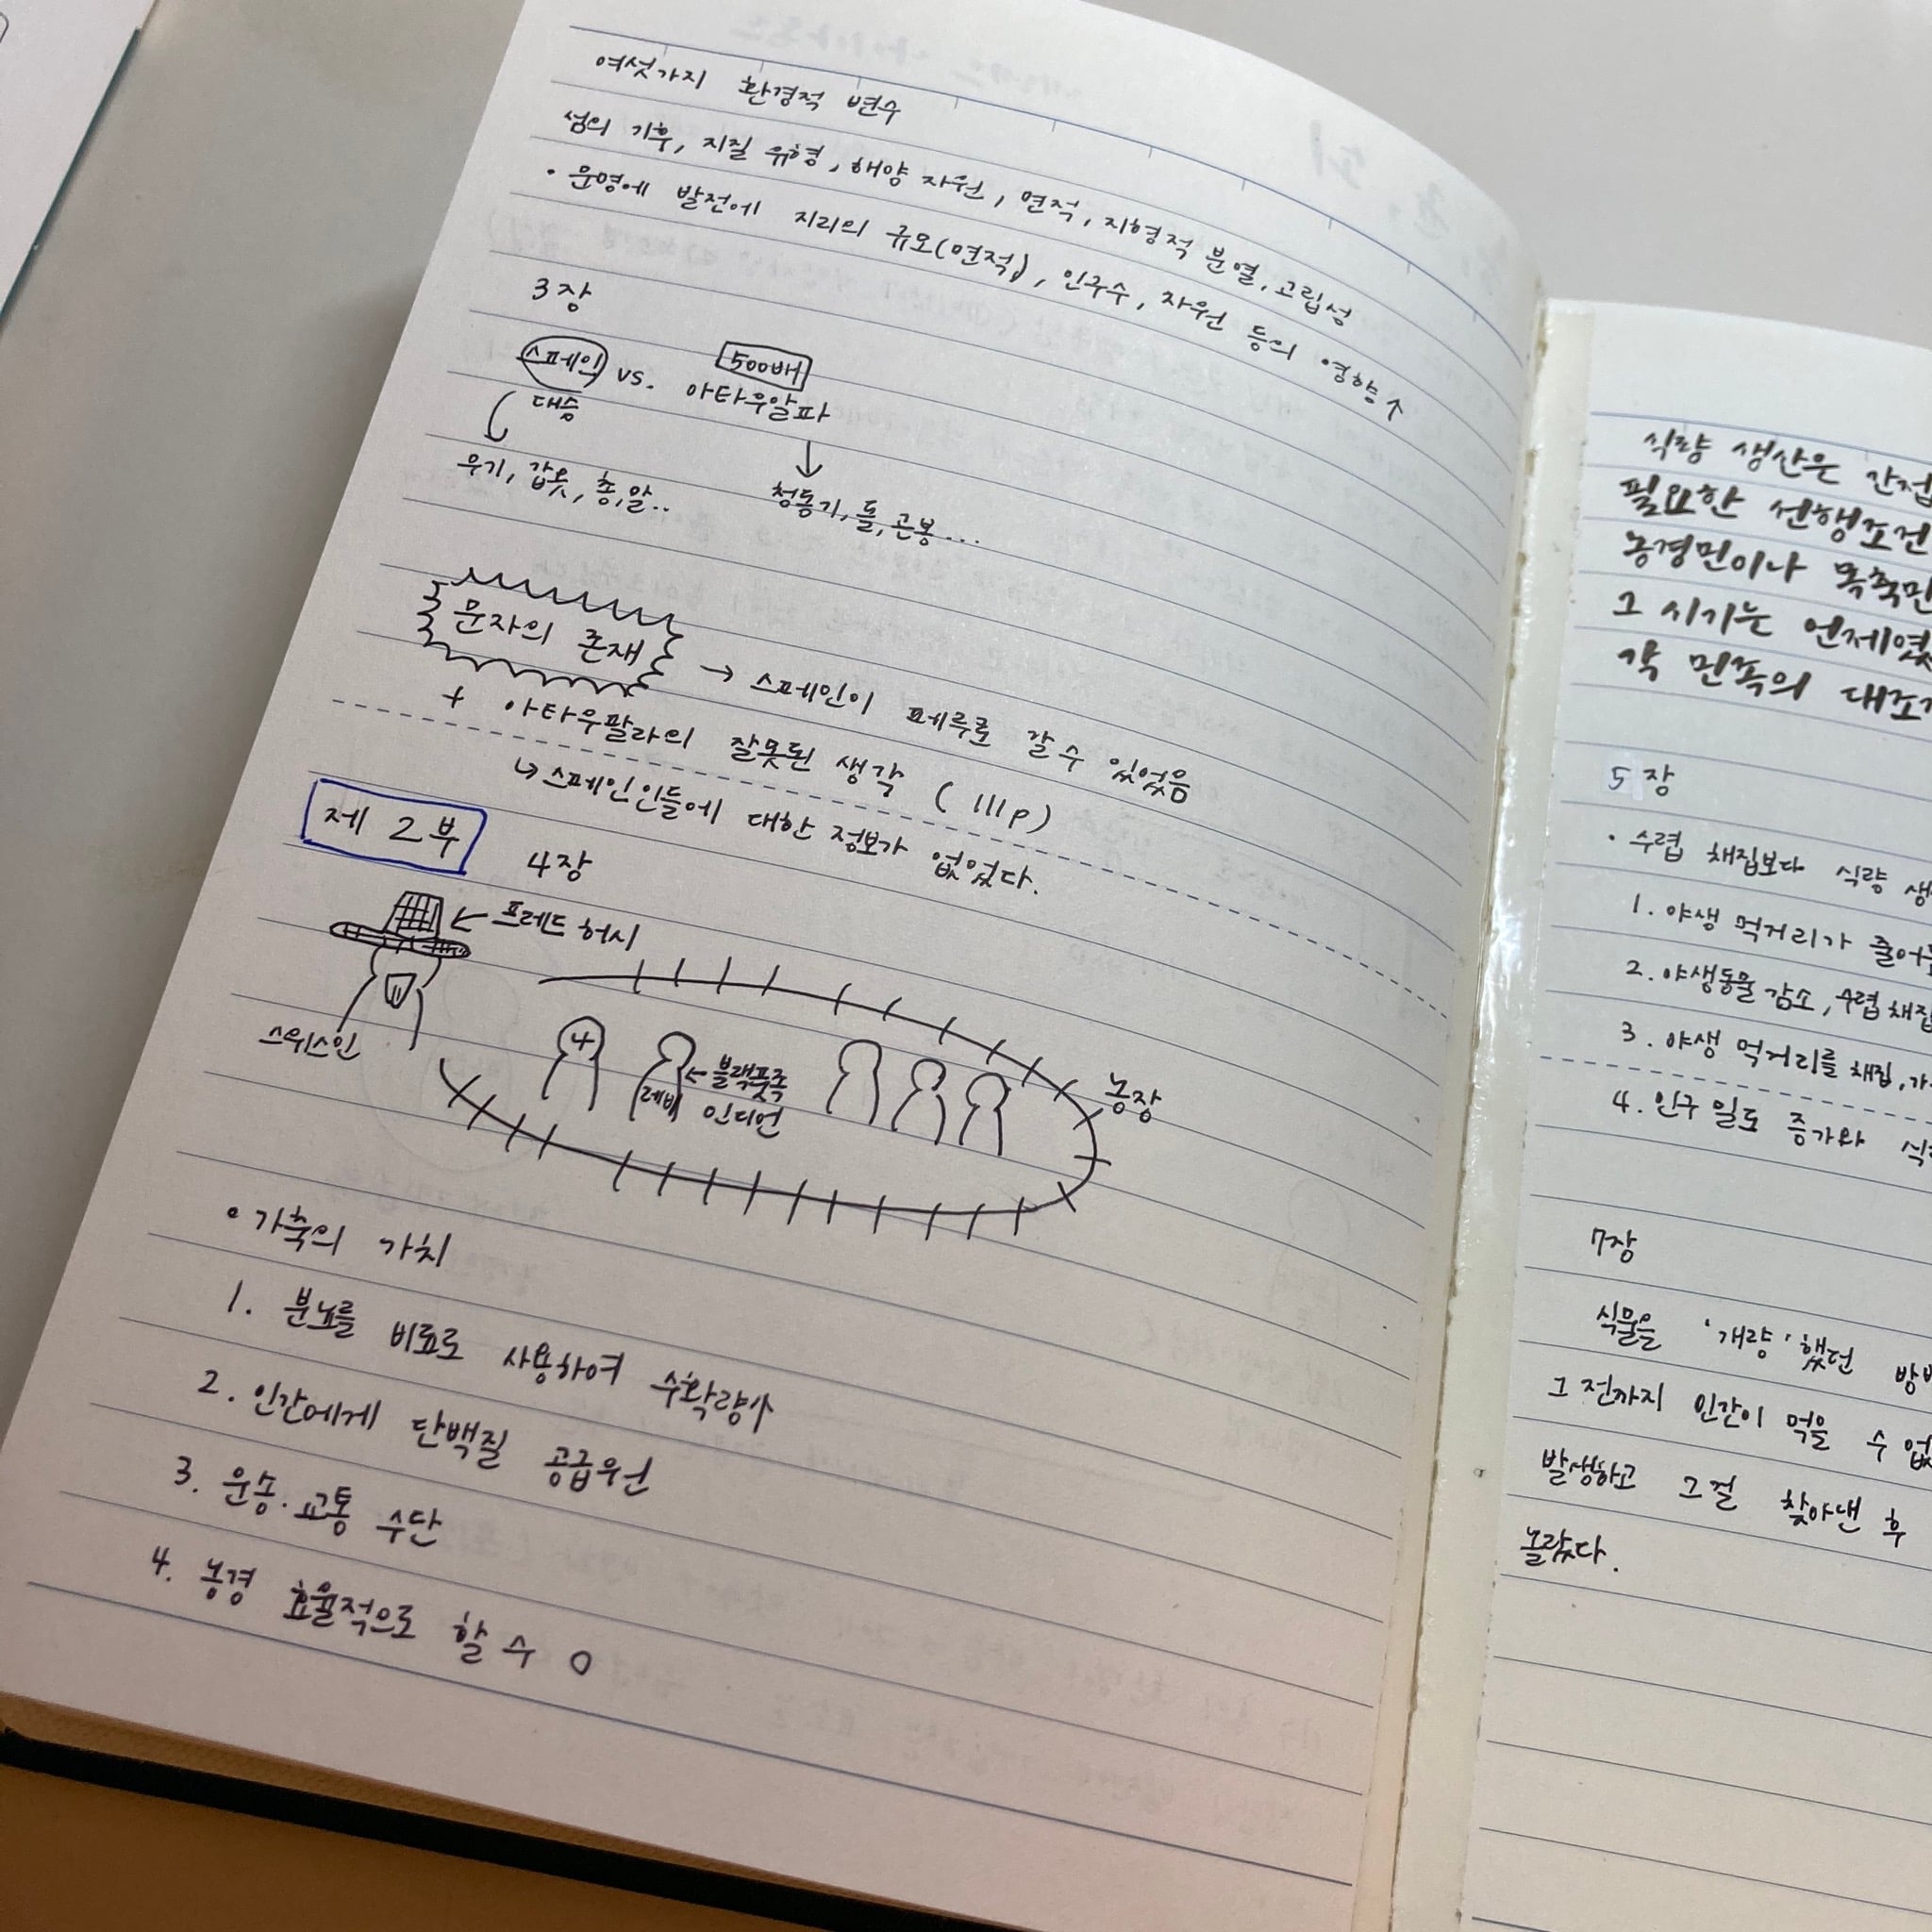 여섯가지 환경적 변수
섬의 기후, 지질 유형, 해양 자원, 면적, 지형적 분열, 고립성
· 문명에 발전에 지리의 규모(면적), 인구수, 자원 등의 영향↑
3장
스페인 vs. 500배
아타우알파
대승
무기, 갑옷, 총, 알..
청동기, 돌, 곤봉...
문자의 존재 → 스페인이 페루로 갈 수 있었음
+ 아타우팔라의 잘못된 생각 (111p)
↳ 스페인인들에 대한 정보가 없었다.
제 2부
4장
← 프레드 허시
스위스인
4
레비
← 블랙풋족
인디언
농장
• 가축의 가치
1. 분뇨를 비료로 사용하여 수확량↑
2. 인간에게 단백질 공급원
3. 운송·교통 수단
4. 농경 효율적으로 할 수 O
식량 생산은 간접
필요한 선행조건
농경민이나 목축민
그 시기는 언제였
각 민족의 대조
5장
· 수렵 채집보다 식량 생
1. 야생 먹거리가 줄어
2. 야생동물 감소, 수렵 채집
3. 야생 먹거리를 채집, 가
4. 인구 밀도 증가와 식
7장
식물을 '개량'했던 방
그 전까지 인간이 먹을 수 없
발생하고 그걸 찾아낸 후
놀랐다.